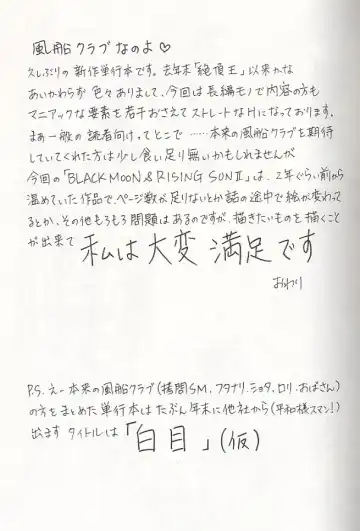 風船クラブなのよ♡
久しぶりの新作単行本です。去年末「絶頂王」以来かな
あいかわらず色々ありまして、今回は長編モノで内容の方も
マニアックな要素を若干おさえてストレートなHになっております。
まぁ一般の読者向けってとこで……本来の風船クラブを期待
していてくれた方は少し食い足り無いかもしれませんが
今回の「BLACK MOON & RISING SONⅡ」は、2年ぐらい前から
温めていた作品で、ページ数が足りないとか話の途中で絵が変わって
るとか、その他もろもろ問題はあるのですが、描きたいものを描くこと
が出来て 私は大変満足です
おわり
P.S. えー本来の風船クラブ(拷問SM、フタナリ、ショタ、ロリ、おばさん)
の方をまとめた単行本はたぶん年末に他社から(平和様スマン!)
出ます タイトルは「白目」(仮)